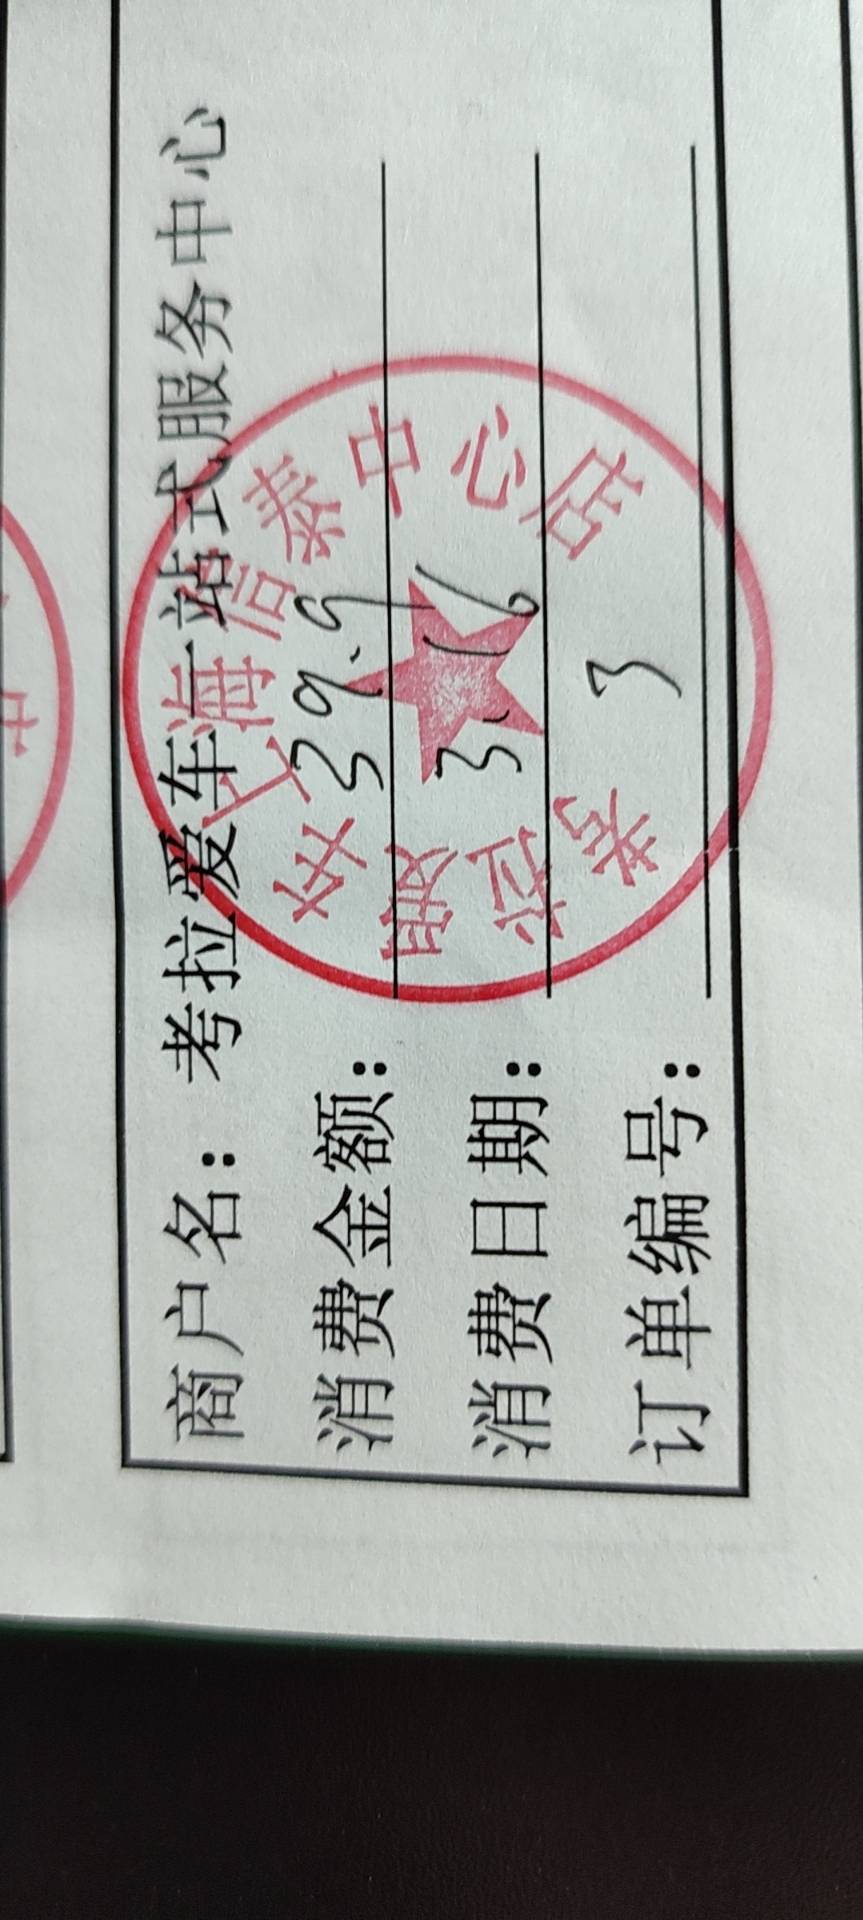 商户名：考拉爱车一站式服务中心
消费金额：39.9
消费日期：3.16
订单编号：3
考拉服车上海信泰中心店
中